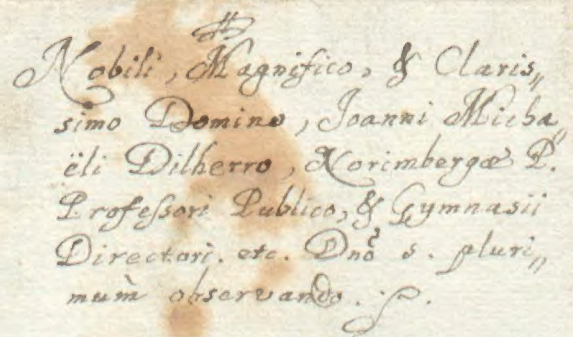 Nobili, Magnifico, & Claris„
simo Domino, Joanni Micha„
ëli Dilherro, Norimbergæ P.
Professori Publico, & Gymnasii
Directori. etc. Dnō s. pluri„
mum̀ observando.